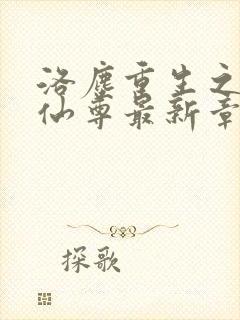 洛塵重生之
仙尊最新章
探歌